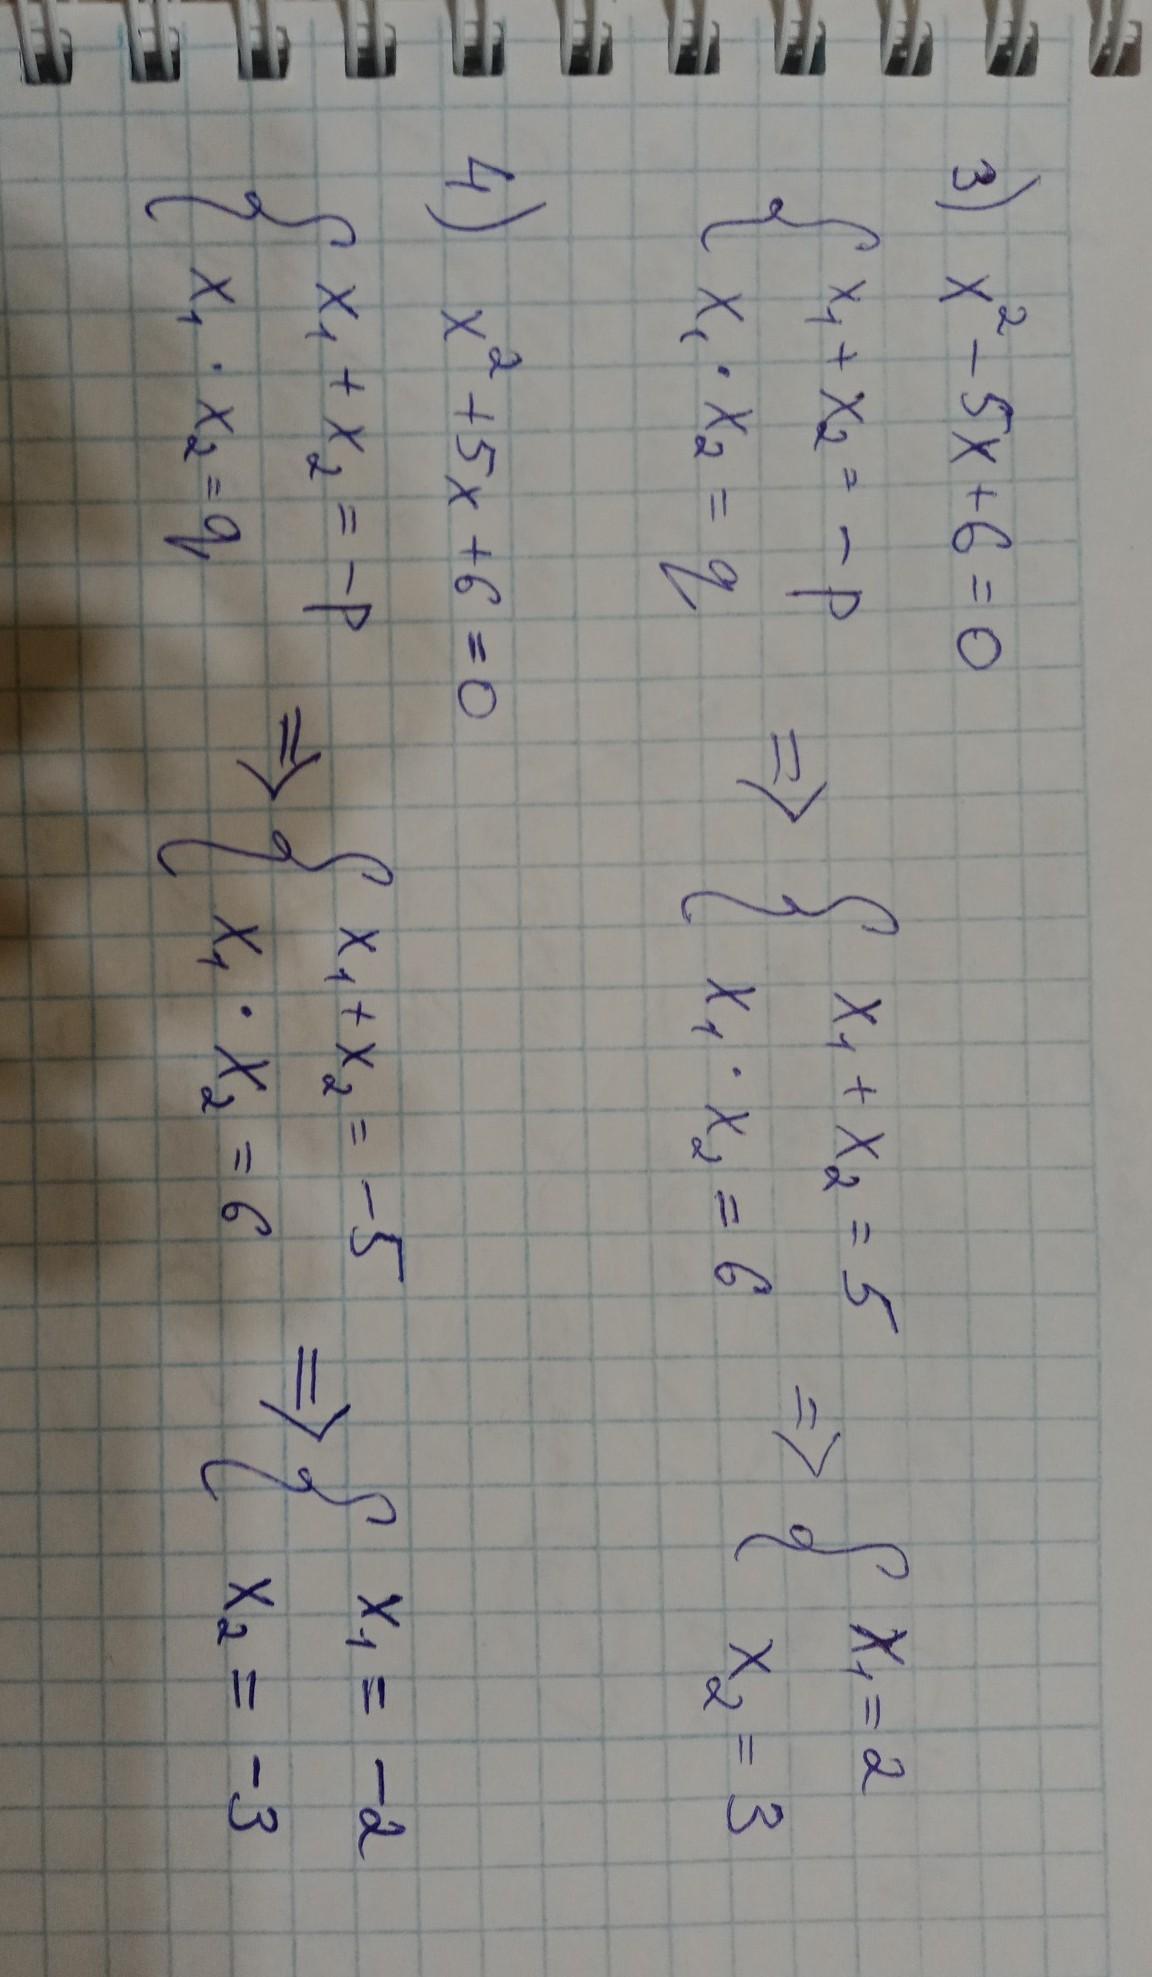 3) x² - 5x + 6 = 0
{ x₁ + x₂ = -p => { x₁ + x₂ = 5 => { x₁ = 2
{ x₁ · x₂ = q { x₁ · x₂ = 6 { x₂ = 3
4) x² + 5x + 6 = 0
{ x₁ + x₂ = -p => { x₁ + x₂ = -5 => { x₁ = -2
{ x₁ · x₂ = q { x₁ · x₂ = 6 { x₂ = -3